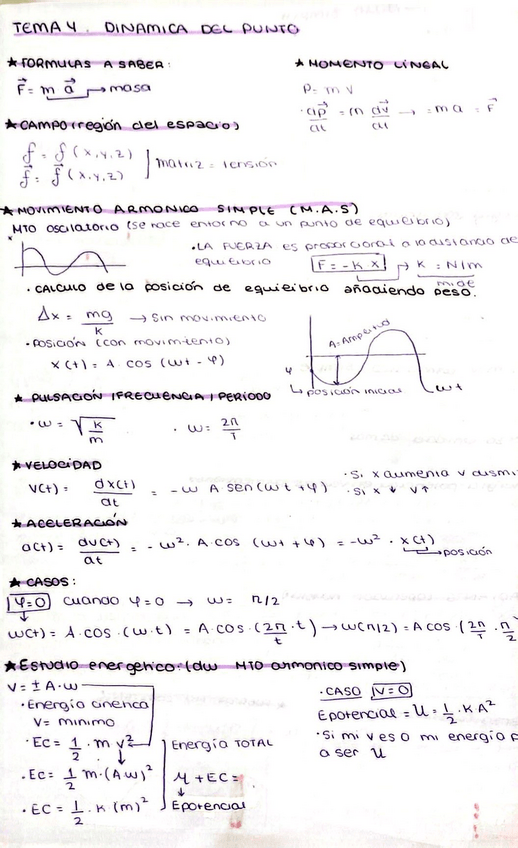 TEMA 4. DINAMICA DEL PUNTO
★ FORMULAS A SABER:
F⃗ = m a⃗ → masa
★ MOMENTO LINEAL
P = m v
· dp⃗/dt = m dv⃗/dt → = m a = F⃗
★ CAMPO (región del espacio)
f = f (x, y, z)
f⃗ = f⃗ (x, y, z)
matriz = tensión
★ MOVIMIENTO ARMONICO SIMPLE (M.A.S)
MTO oscilatorio (se hace entorno a un punto de equilibrio)
· LA FUERZA es proporcional a la distancia de
equilibrio F = -k x → k = N/m
· CALCULO de la posición de equilibrio añadiendo peso.
Δx = mg/k → sin movimiento
· POSICIÓN (con movimiento)
x(t) = A cos (wt - φ)
A = Amplitud
φ
posición inicial
wt
★ PULSACIÓN / FRECUENCIA / PERIODO
· w = √k/m · w = 2π/T
★ VELOCIDAD
v(t) = dx(t)/dt = -w A sen (wt + φ)
· Si x aumenta v dismi
· Si x ↓ v↑
★ ACELERACIÓN
a(t) = dv(t)/dt = -w² · A · cos (wt + φ) = -w² · x(t)
→ posición
★ CASOS:
φ=0 cuando φ=0 → w = π/2
w(t) = A · cos · (w·t) = A cos · (2π/t · t) → w(π/2) = A cos · (2π/t · π/2
★ Estudio energético: (dw MTO armonico simple)
v = ± A · w
· Energía cinética
v = minimo
· Ec = 1/2 · m v²
· Ec = 1/2 m · (A w)²
· EC = 1/2 · k (m)²
Energía TOTAL
μ + EC =
Epotencial
· CASO v=0
Epotencial = U = 1/2 · K A²
· Si mi v es 0 mi energía
a ser U